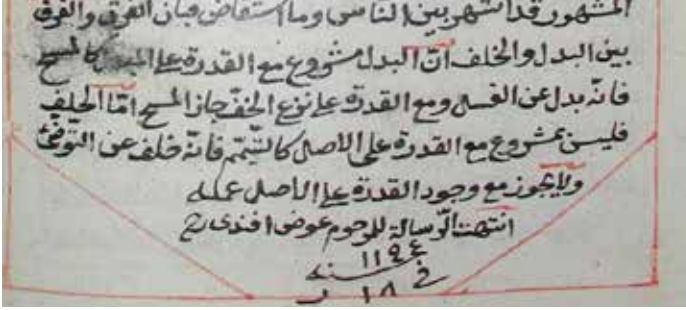 المشهور قد اشتهر بين الناس وما استفاض فبان الفرق والفرق
بين البدل والخلف انّ البدل مشروع مع القدرة علے المبدل كالمسح
فانّه بدل عن الغسل ومع القدرة علے نزع الخفّ جاز المسح امّا الخلف
فليس بمشروع مع القدرة على الاصل كالتيمّم فانّه خلف عن التّوضئ
ولا يجوز مع وجود القدرة علے الاصل عمله
انتهت الرّسالة للمرحوم عوض افندى
سنه ١١٩٤
١٨